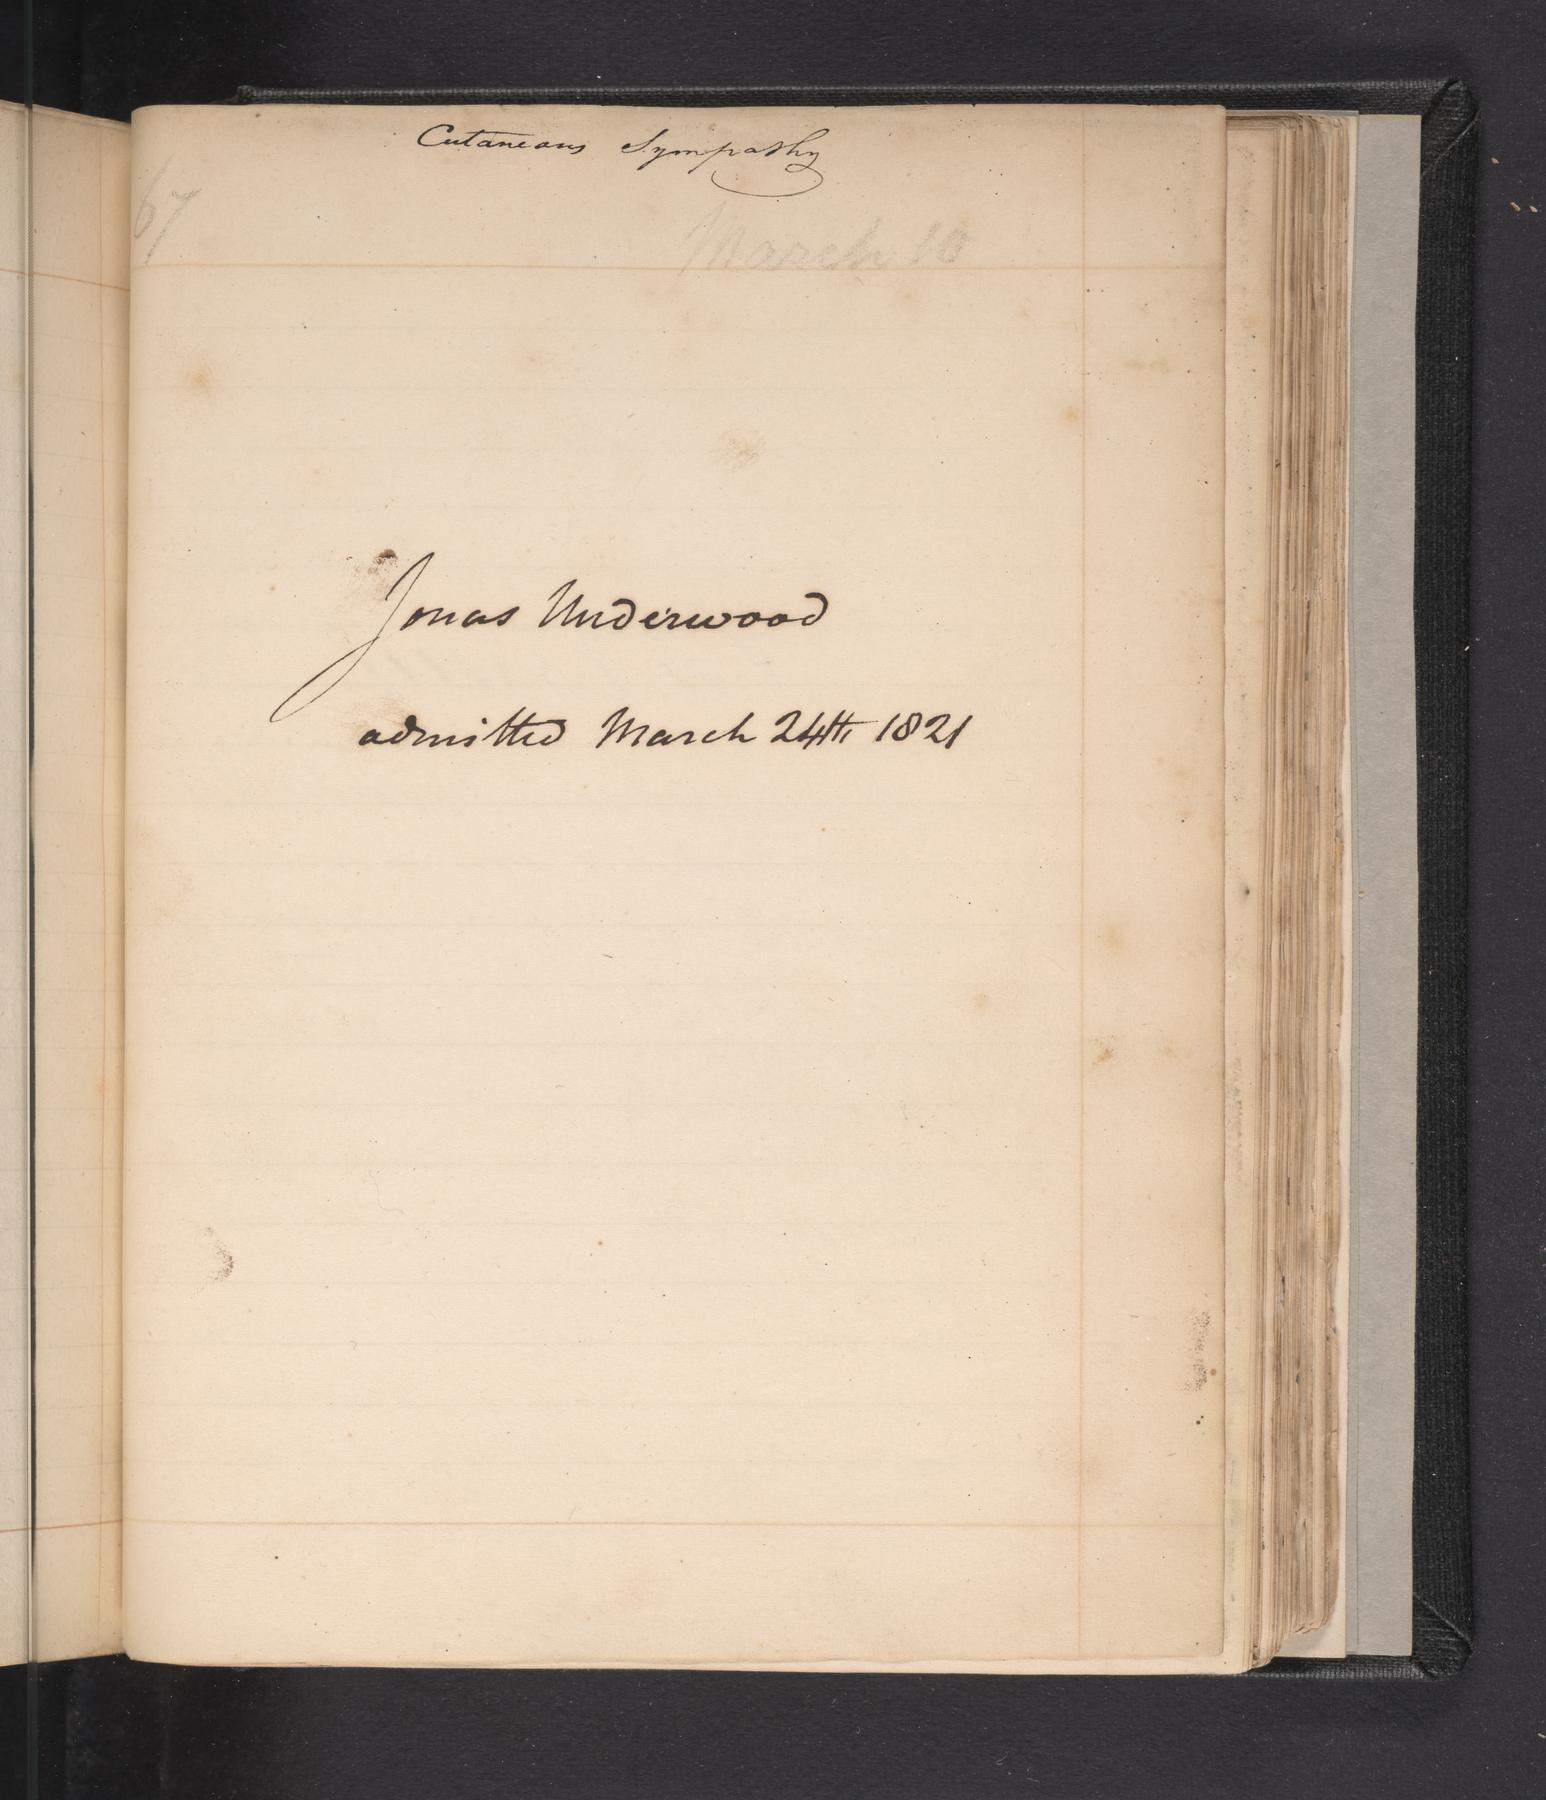 Cutaneous Sympathy
67
March 10
Jonas Underwood
admitted March 24th 1821